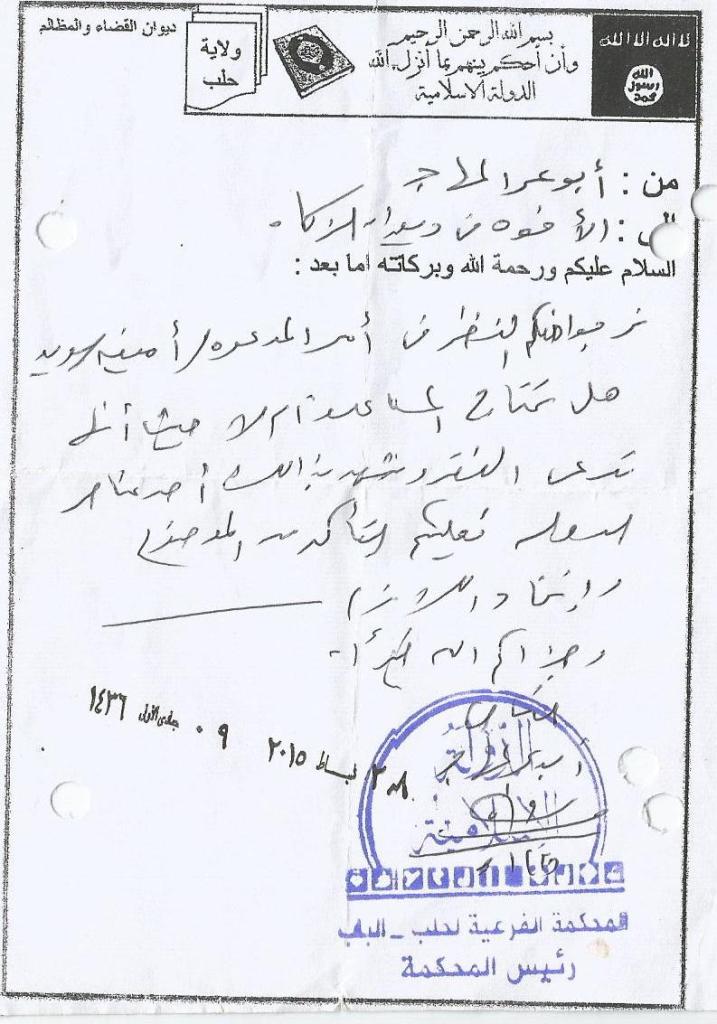 ديوان القضاء والمظالم
ولاية
حلب
بسم الله الرحمن الرحيم
وأن أحكم بينهم بما أنزل الله
الدولة الاسلامية
لا اله الا الله
الله
رسول
محمد
من : أبو عمر المهاجر
الى : الأخوة في ديوان الزكاة
السلام عليكم ورحمة الله وبركاته اما بعد :
نرجوا منكم النظر في أمر المدعوه / أمينه سويد
هل تحتاج المساعدة ام لا حيث أنها
تدعي الفقر وشهد بذلك أحد عناصر
الدوله فعليكم التأكد من الموضوع
واتخاذ اللازم
وجزاكم الله خيراً
٠٩ جمادى الأول ١٤٣٦
٢٨ شباط ٢٠١٥
الدولة
الإسلامية
المحكمة الفرعية لحلب - الباب
رئيس المحكمة